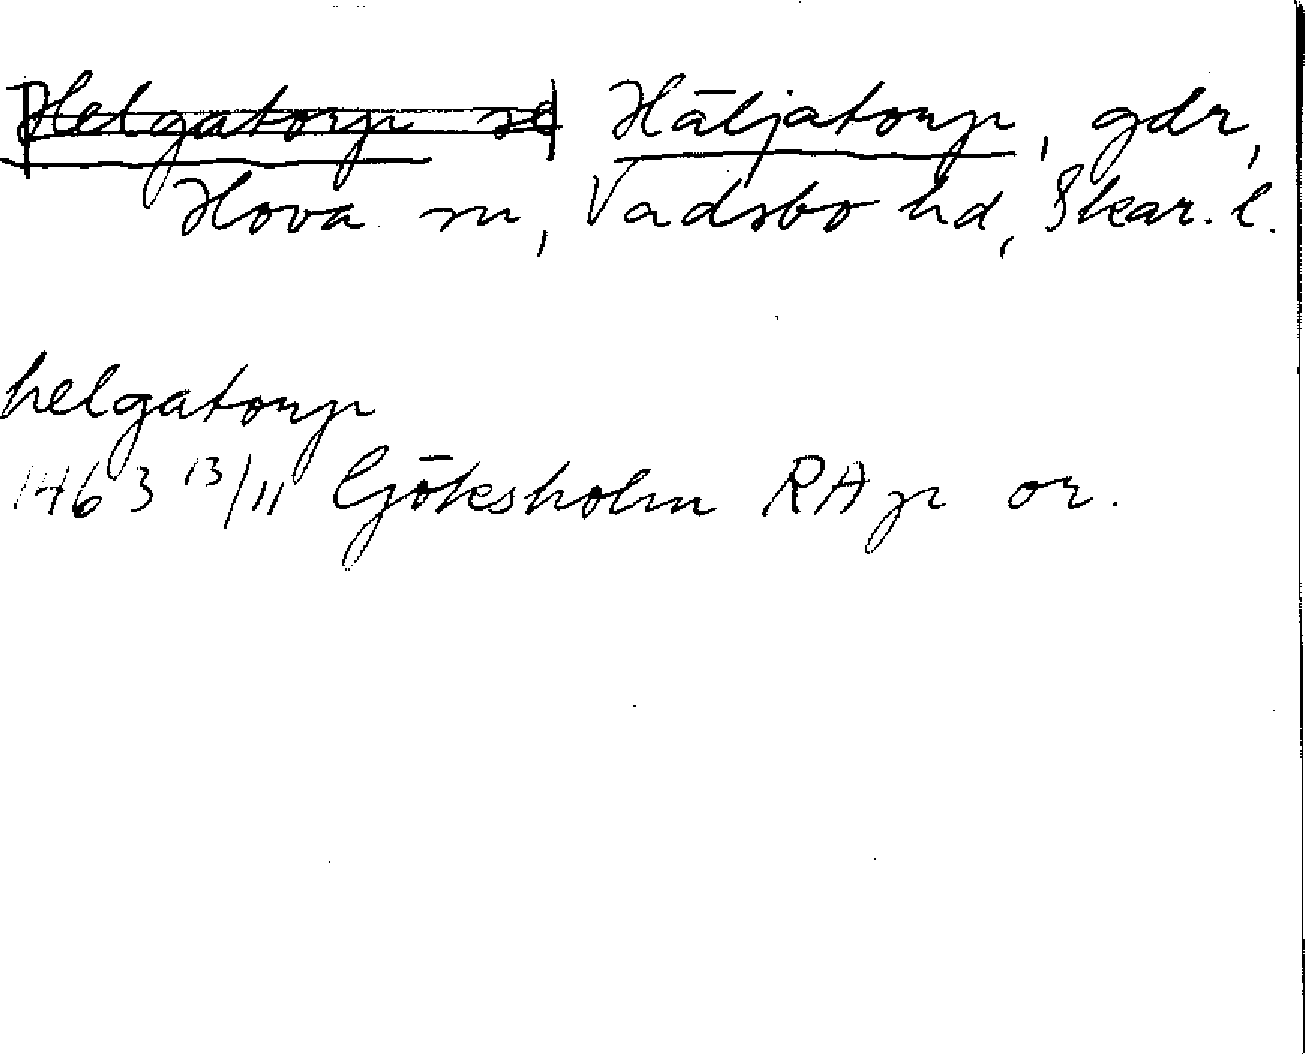 Helgatorp se Häljatorp, gdr,
Hova sn, Vadsbo hd, Skar. l.
helgatorp
1463 13/11 Gjöksholm RAp or.